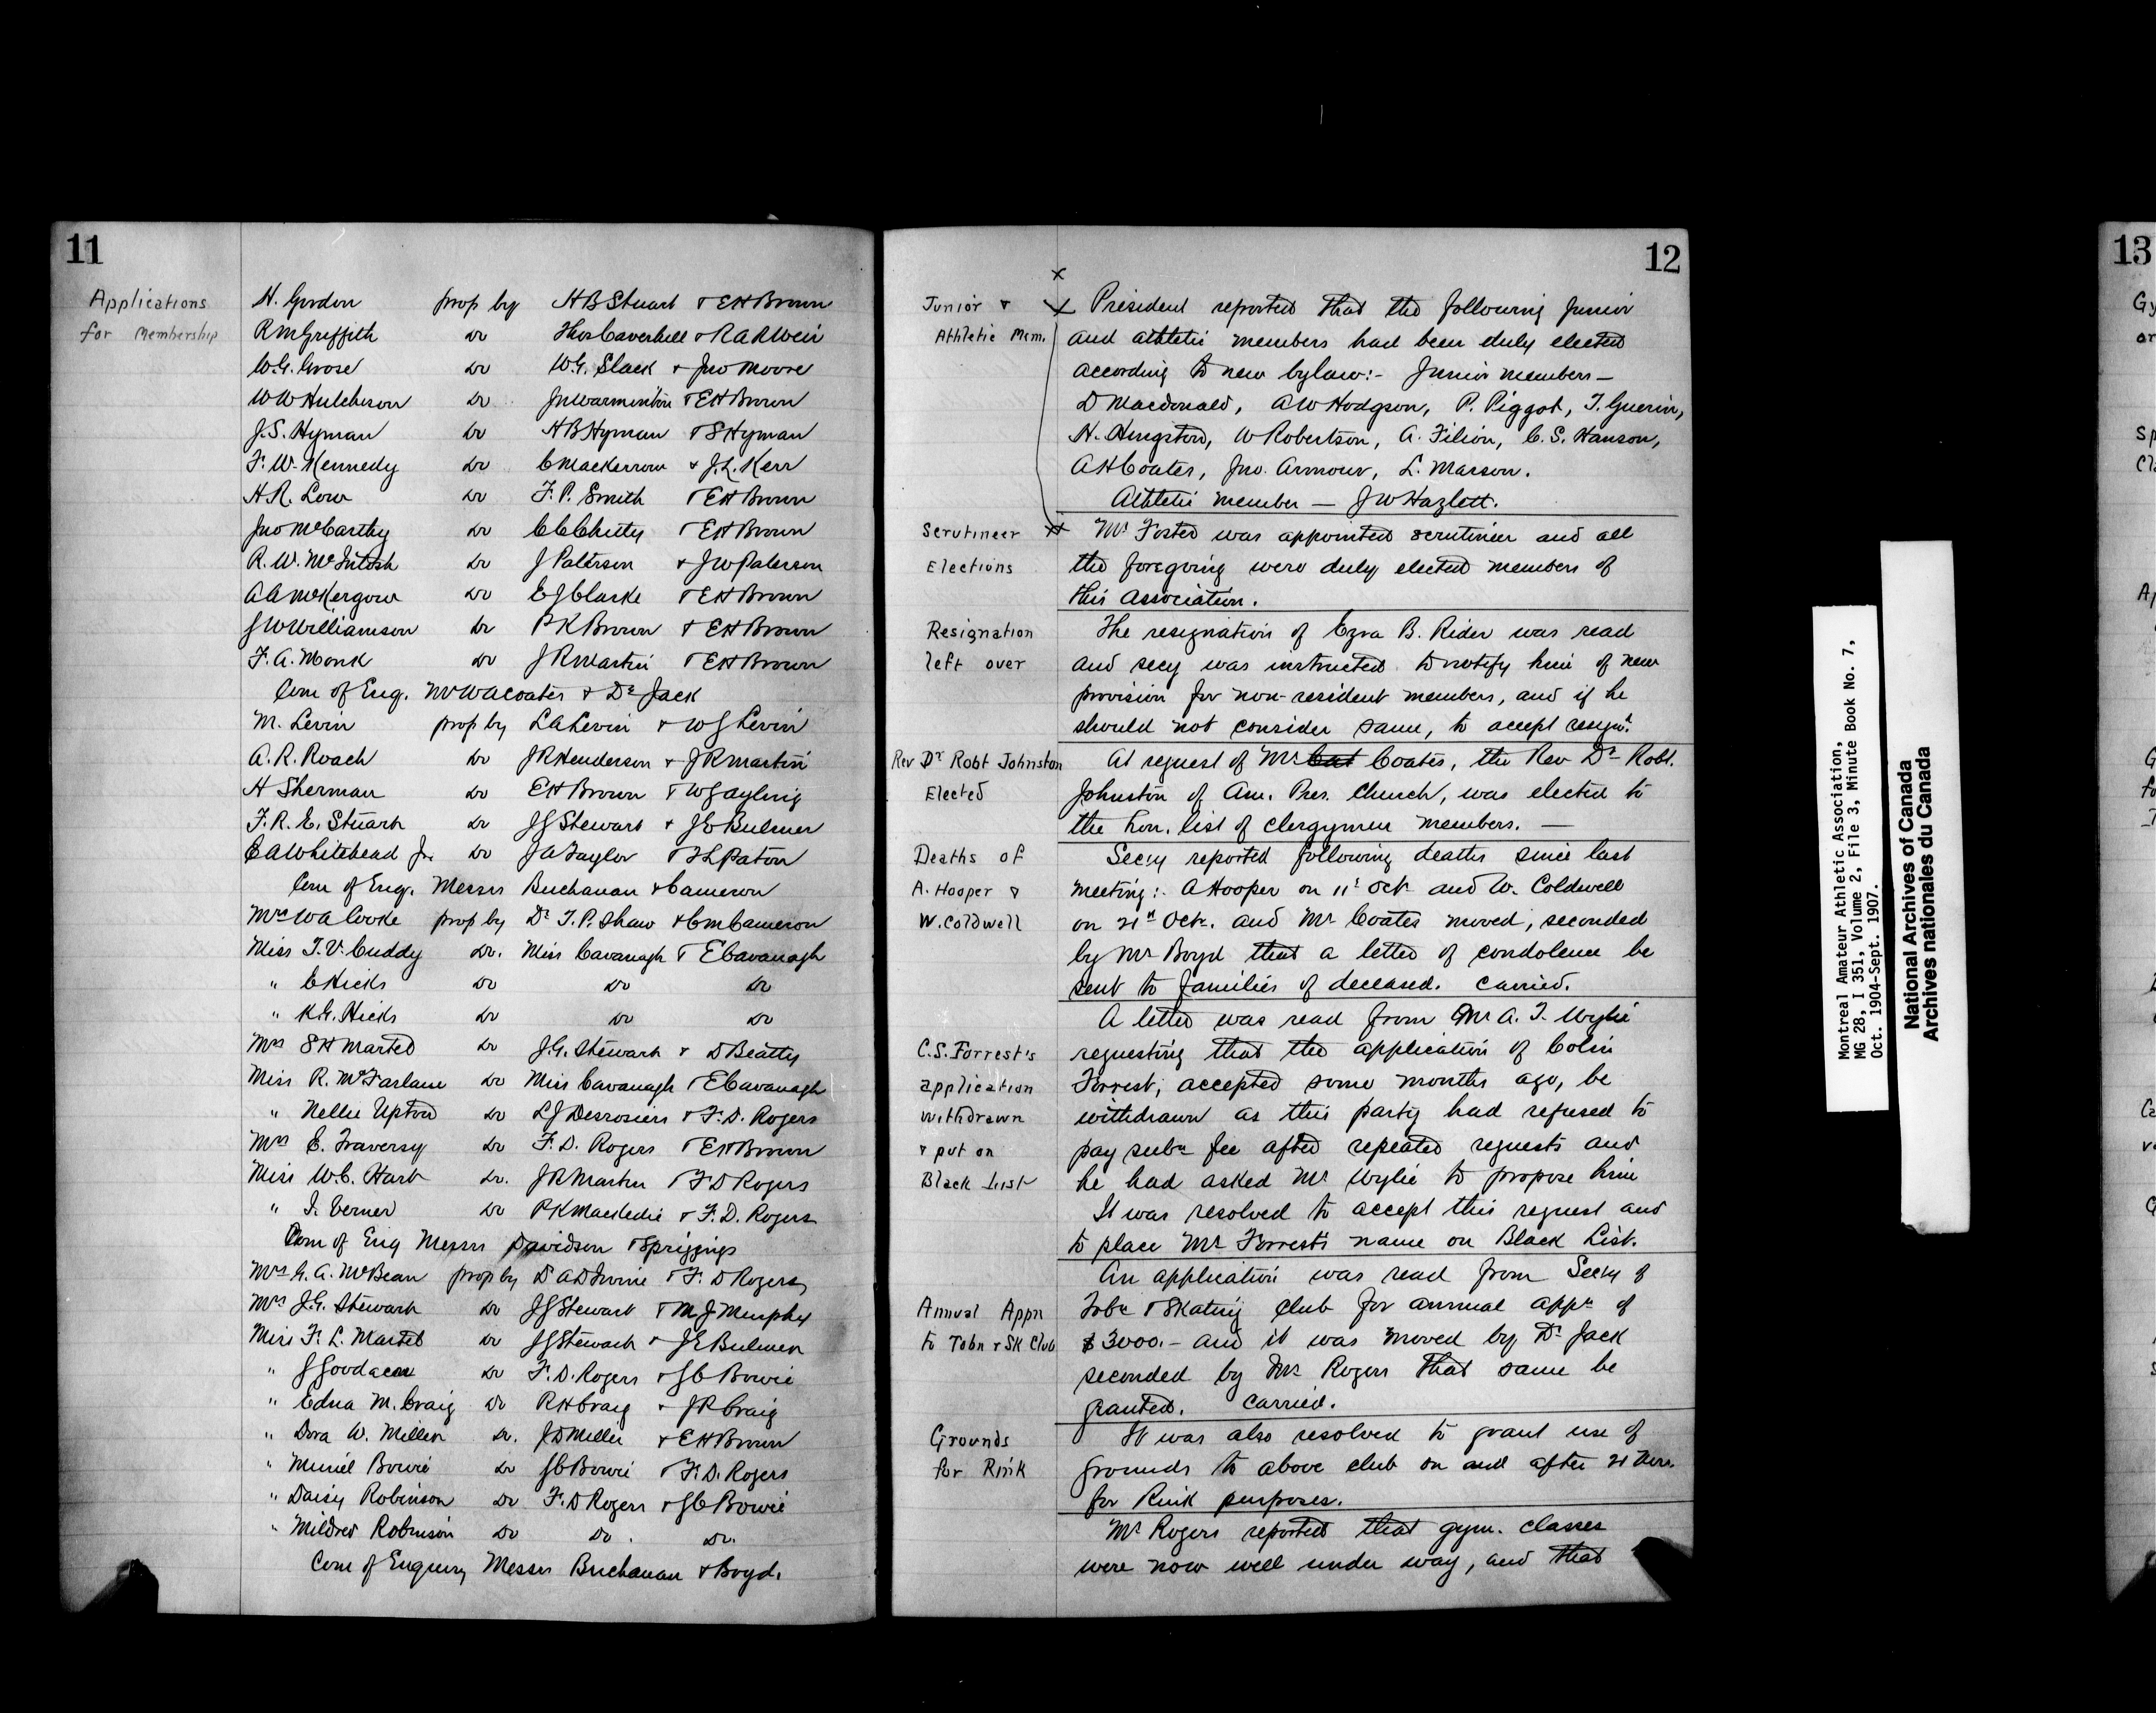 11
Applications
for Membership
H. Gordon prop by H B Stuart & E H Brown
R M Griffith Do Thos Caverhill & R A R Weir
W. G. Grose Do W. G. Slack & Jno Moore
W W Hutcheson Do Jn Warminton & E H Brown
J. S. Hyman Do H B Hyman & S Hyman
F. W. Kennedy Do C Mackerrow & J. L. Kerr
H R. Low Do F. P. Smith & E H Brown
Jno McCarthy Do C C Chitty & E H Brown
R. W. McIntosh Do J Paterson & J W Paterson
A A McKergow Do E J Clarke & E H Brown
J W Williamson Do P K Brown & E H Brown
F. A. Monk Do J R Martin & E H Brown
Com of Enq. Mr W A Coates & Dr Jack
M. Levin prop by L A Levin & W J Levin
A. R. Roach Do J R Henderson & J R Martin
H Sherman Do E H Brown &
F. R. E. Stuart Do J G Stewart & J E Bulmer
E A Whitehead Jr. Do J A Taylor & F L Paton
Com of Enq. Messrs Buchanan & Cameron
Mrs W A Cooke prop by Dr T. P. Shaw & C M Cameron
Miss T. V. Cuddy Do. Miss Cavanagh & E Cavanagh
" E Hicks Do Do Do
" K G. Hicks Do Do Do
Mrs S H Martel Do J. G. Stewart & D Beatty
Miss R. McFarlane Do Miss Cavanagh & E Cavanagh
" Nellie Upton Do L J Desrosiers & F. D. Rogers
Mrs E. Traversy Do F. D. Rogers & E H Brown
Miss W. C. Hart Do. J R Martin & F D Rogers
" I. Verner Do P K Mackedie & F. D. Rogers
Com of Enq Messrs Davidson & Spriggings
Mrs G. A. McBean prop by D A D Irvine & F. D Rogers
Mrs J. G. Stewart Do J G Stewart & M J Murphy
Miss F. L. Martel Do J G Stewart & J E Bulmer
" J Goodacre Do F. D. Rogers & J C Bowie
" Edna M. Craig Do R H Craig & J R Craig
" Dora W. Miller Do. J D Miller & E H Brown
" Muriel Bowie Do J C Bowie & F. D. Rogers
" Daisy Robinson Do F. D Rogers & J C Bowie
" Mildred Robinson Do Do. Do.
Com of Enquiry Messrs Buchanan & Boyd.
12
Junior & x President reported that the following Junior
Athletic Mem. and athletic members had been duly elected
according to new bylaw:- Junior members —
D Macdonald, A W Hodgson, P. Piggot, T. Guerin,
H. Hingston, W Robertson, A. Filion, C. S. Hanson,
A H Coates, Jno. Armour, L. Masson.
Athletic member — J W Hazlett.
Scrutineer x Mr Foster was appointed scrutineer and all
Elections the foregoing were duly elected members of
this Association.
Resignation The resignation of Ezra B. Rider was read
left over and secy was instructed to notify him of new
provision for non-resident members, and if he
should not consider same, to accept resignn.
Rev Dr Robt Johnston At request of Mr Cat Coates, the Rev Dr Robt.
Elected Johnston of Am. Pres. Church, was elected to
the hon. list of clergymen members. —
Deaths of Secy reported following deaths since last
A. Hooper & meeting: A Hooper on 11t Oct and W. Coldwell
W. Coldwell on 21st Oct. and Mr Coates moved, seconded
by Mr Boyd that a letter of condolence be
sent to families of deceased. Carried.
A letter was read from Mr A. T. Wylie
C. S. Forrest's requesting that the application of Colin
application Forrest, accepted some months ago, be
withdrawn withdrawn as this party had refused to
& put on pay subn fee after repeated requests and
Black List he had asked Mr Wylie to propose him
It was resolved to accept this request and
to place Mr Forrest's name on Black List.
An application was read from Secy of
Annual Appn Tobn & Skating Club for annual appn of
to Tobn & Sk Club $3000.- and it was moved by Dr Jack
seconded by Mr Rogers that same be
granted. Carried.
Grounds It was also resolved to grant use of
for Rink grounds to above club on and after 21 inst.
for Rink purposes.
Mr Rogers reported that gym. classes
were now well under way, and that
Montreal Amateur Athletic Association,
MG 28, I 351, Volume 2, File 3, Minute Book No. 7,
Oct. 1904-Sept. 1907.
National Archives of Canada
Archives nationales du Canada
13